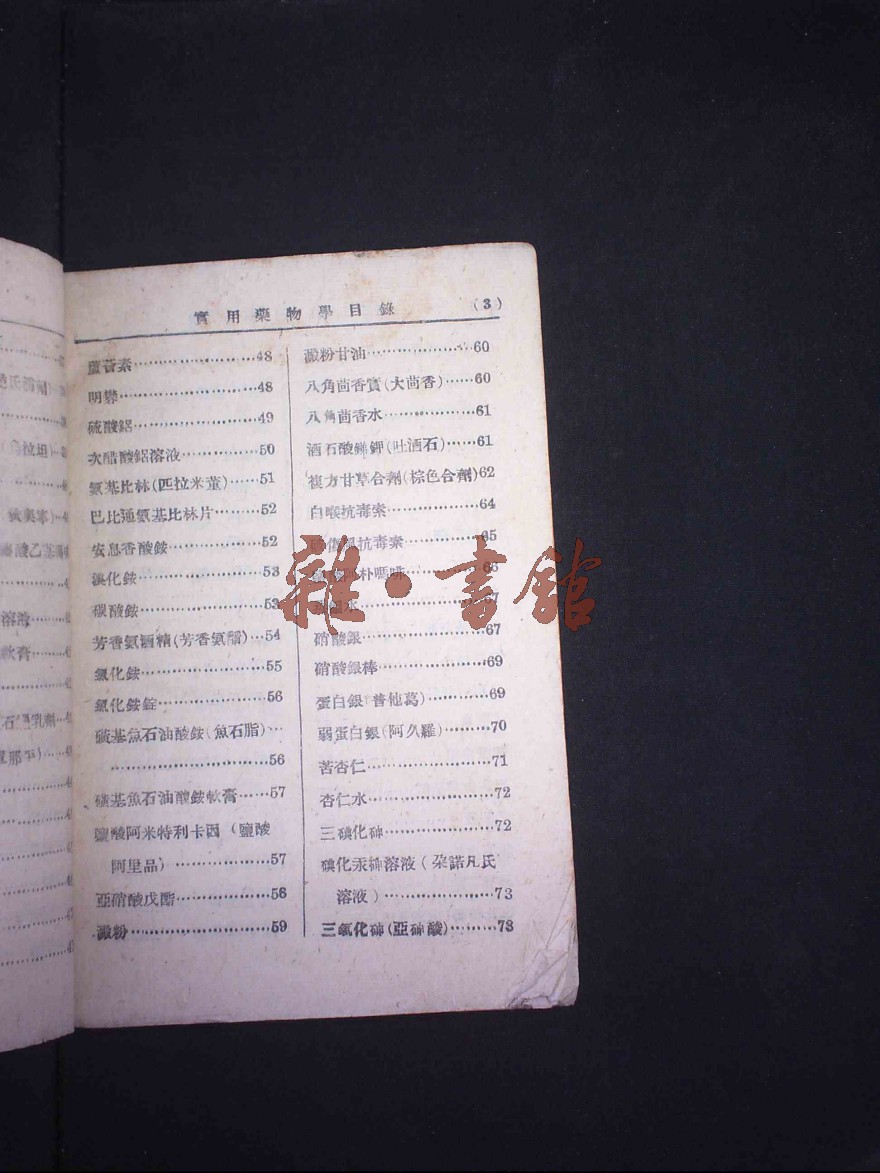 實用藥物學目錄 (3)
蘆薈素……48
明礬……48
硫酸鋁……49
次醋酸鋁溶液……50
氨基比林(匹拉米董)……51
巴比通氨基比林片……52
安息香酸銨……52
溴化銨……53
碳酸銨……53
芳香氨酒精(芳香氨醑)……54
氯化銨……55
氯化銨錠……56
磺基魚石油酸銨(魚石脂)…
……56
磺基魚石油酸銨軟膏……57
鹽酸阿米特利卡因(鹽酸
阿里品)……57
亞硝酸戊酯……58
澱粉……59
澱粉甘油……60
八角茴香實(大茴香)……60
八角茴香水……61
酒石酸銻鉀(吐酒石)……61
複方甘草合劑(棕色合劑)62
白喉抗毒素……64
抗毒素……65
朴嗎啡……66
水……67
硝酸銀……67
硝酸銀棒……69
蛋白銀(普他葛)……69
弱蛋白銀(阿久羅)……70
苦杏仁……71
杏仁水……72
三碘化砷……72
碘化汞砷溶液(朶諾凡氏
溶液)……73
三氧化砷(亞砷酸)……73
雜·書館